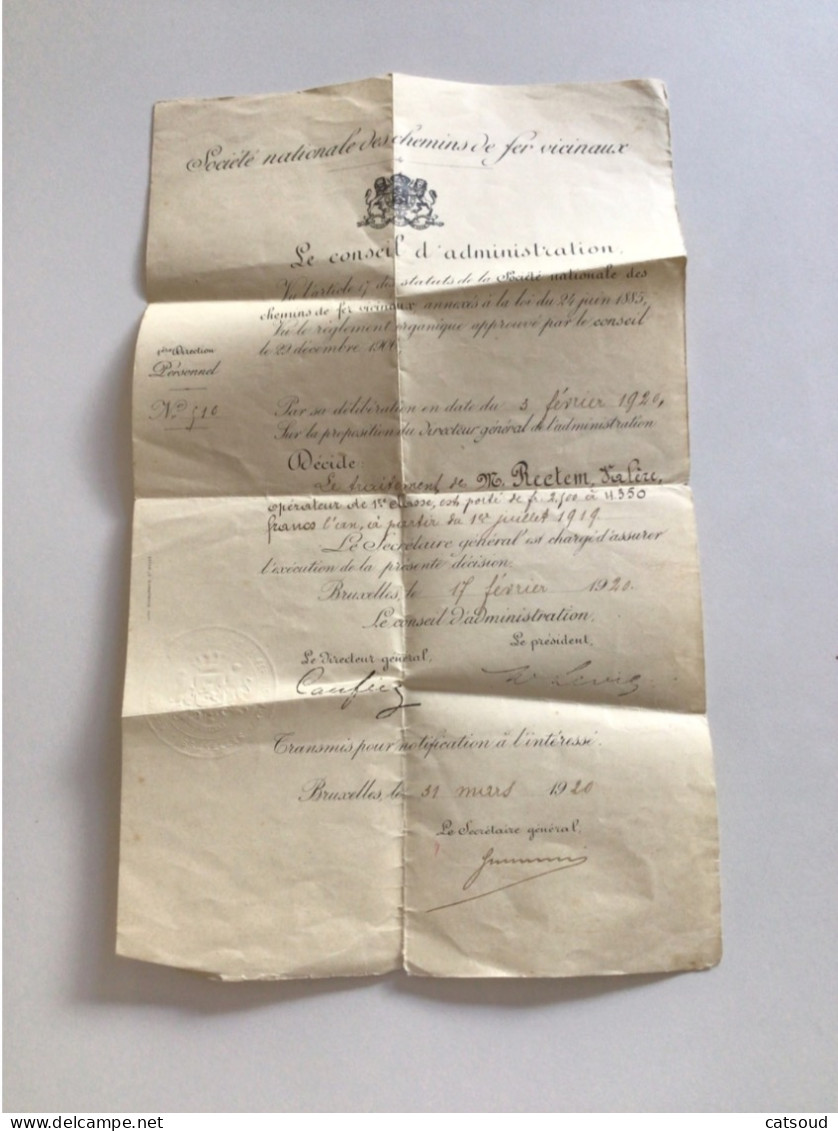 Société nationale des chemins de fer vicinaux
Le conseil d'administration,
Vu l'article 17 des statuts de la Société nationale des
chemins de fer vicinaux annexés à la loi du 24 juin 1885,
Vu le règlement organique approuvé par le conseil
le 29 décembre
Direction
Personnel
No 510
Par sa délibération en date du 3 février 1920,
Sur la proposition du Directeur général de l'administration
Décide:
Le traitement de M. Rectem, Valère,
opérateur de 1re classe, est porté de fr. 2,900 à 4350
francs l'an, à partir du 1er juillet 1919.
Le Secrétaire général est chargé d'assurer
l'exécution de la présente décision.
Bruxelles, le 17 février 1920.
Le conseil d'administration,
Le président,
Le Directeur général,
Transmis pour notification à l'intéressé.
Bruxelles, le 31 mars 1920
Le Secrétaire général,
catsoud